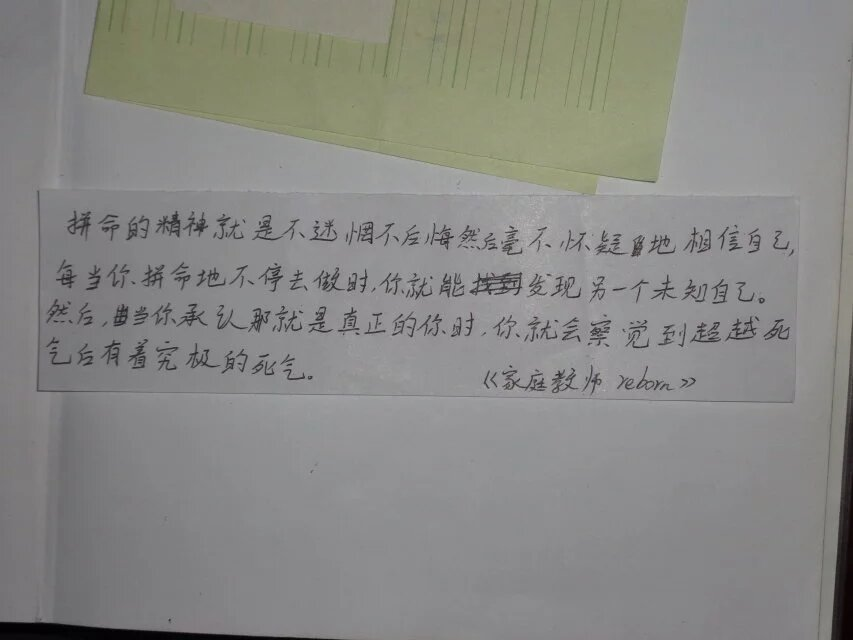 拼命的精神就是不迷惘不后悔然后毫不怀疑地相信自己,
每当你拼命地不停去做时,你就能发现另一个未知自己。
然后,当你承认那就是真正的你时,你就会察觉到超越死
气后有着究极的死气。
《家庭教师 reborn》